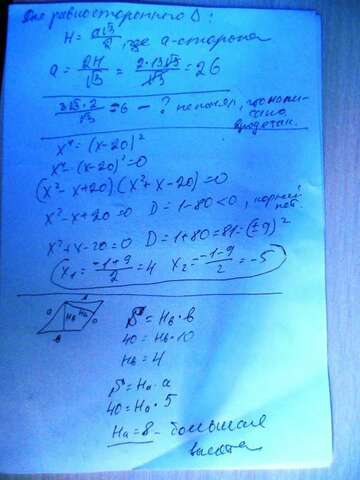 Для равностороннего Δ:
H = a√3/2, где a-сторона
a = 2H/√3 = 2·13√3/√3 = 26
3√3·2/√3 = 6 - ? не понял, что написано,
вроде так.
x⁴ = (x-20)²
x⁴-(x-20)²=0
(x²-x+20)(x²+x-20)=0
x²-x+20=0 D=1-80<0, корней нет.
x²+x-20=0 D=1+80=81=(±9)²
x₁ = -1+9/2 = 4 x₂ = -1-9/2 = -5
a Hв Hа a
в
S = Hв·в
40 = Hв·10
Hв = 4
S = Hа·a
40 = Hа·5
Hа = 8 - большая
высота